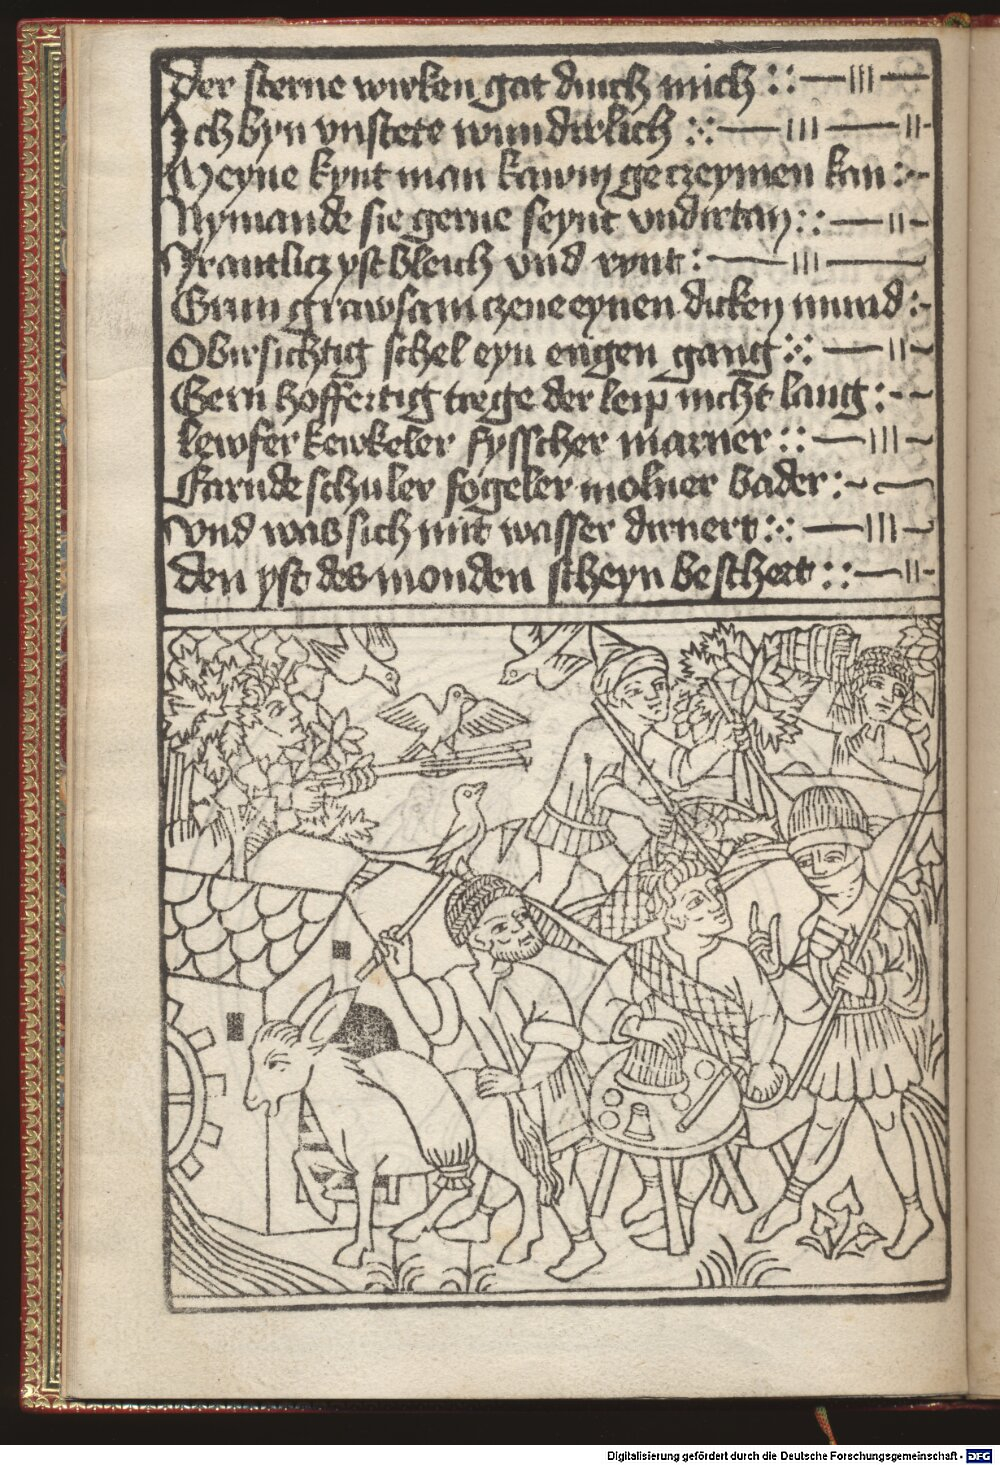 Der sterne wirken gat durch mich
Ich byn vnstete wundirlich
Meyne kynt man kawm geczeymen kan
Nymande sie gerne seynt vndirtan
Jr antlicz yst bleich vnd rynt
Grun grawsam czene eynen dicken mund
Obirsichtig schel eyn engen gang
Gern hoffertig trege der leip nicht lang
lewfer kewkeler fysscher marner
Farnde schuler fogeler molner bader
vnd was sich mit wasser dirnert
den yst des monden scheyn beschert
Digitalisierung gefördert durch die Deutsche Forschungsgemeinschaft - DFG